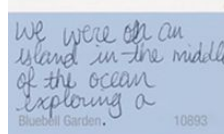 We were on an
island in the middle
of the ocean
exploring a
Bluebell Garden. 10893